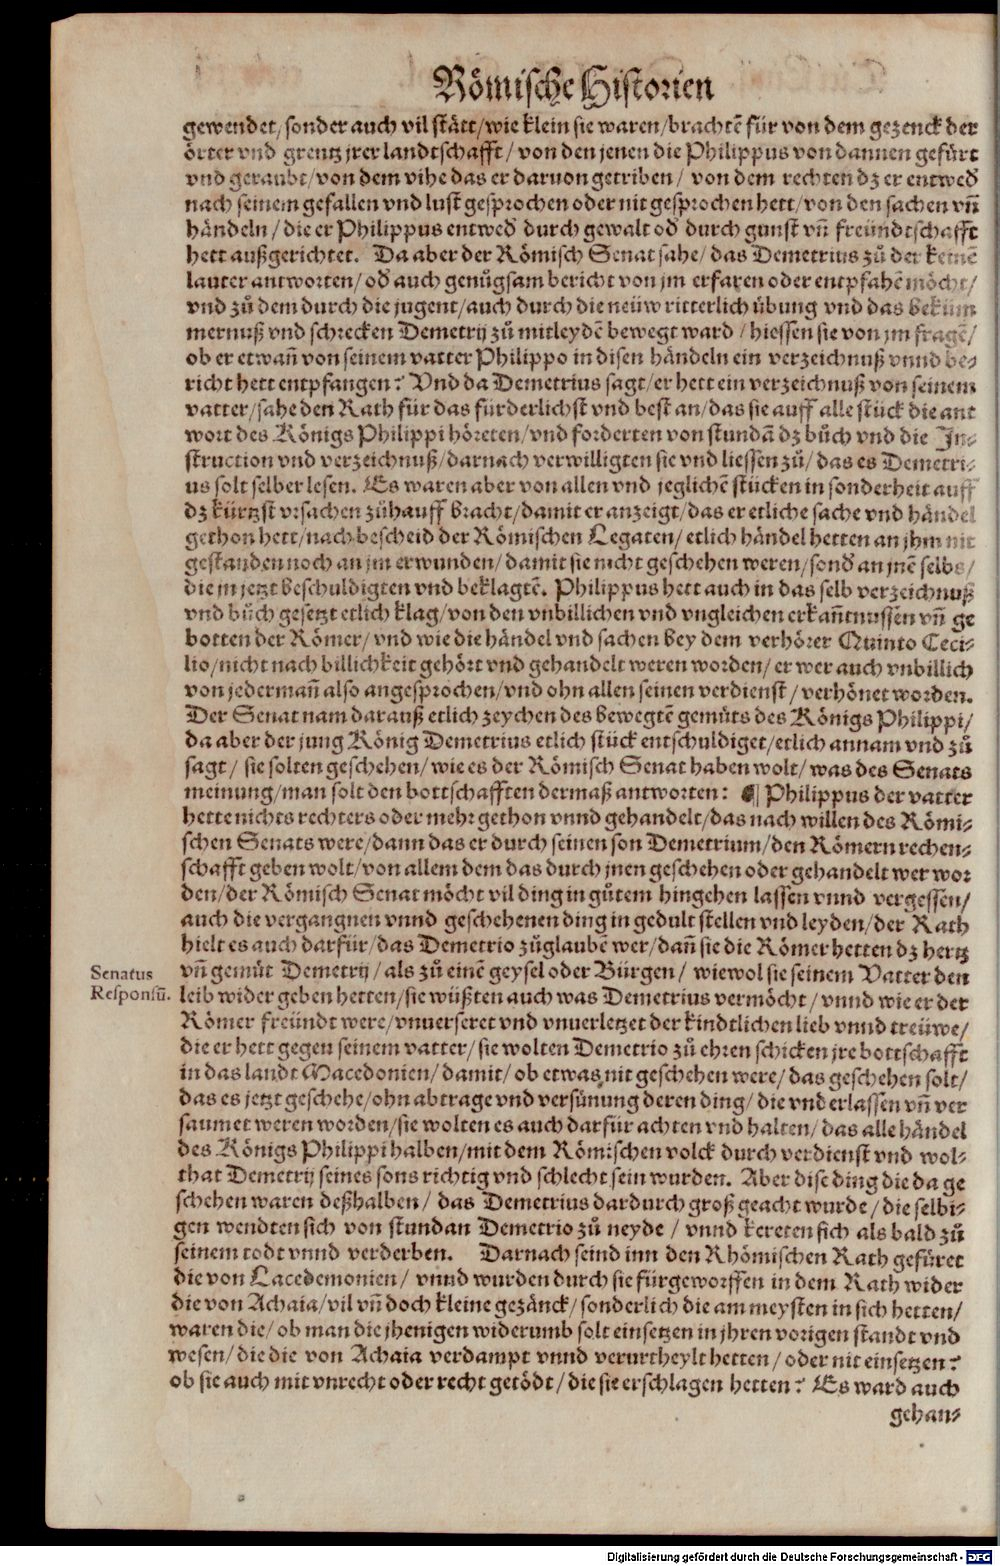 Römische Historien
gewendet/ sonder auch vil stätt/ wie klein sie waren/ brachtẽ für von dem gezenck der
örter vnd grentz jrer landtschafft/ von den jenen die Philippus von dannen gefürt
vnd geraubt/ von dem vihe das er daruon getriben/ von dem rechten dz er entwed̃
nach seinem gefallen vnd lust gesprochen oder nit gesprochen hett/ von den sachen vñ
händeln/ die er Philippus entwed̃ durch gewalt od̃ durch gunst vñ freündtschafft
hett außgerichtet. Da aber der Römisch Senat sahe/ das Demetrius zů der keinẽ
lauter antworten/ od̃ auch genůgsam bericht von jm erfaren oder entpfahẽ möcht/
vnd zů dem durch die jugent/ auch durch die neüw ritterlich übung vnd das beküm
mernuß vnd schrecken Demetrij zů mitleydẽ bewegt ward/ hiessen sie von jm fragẽ/
ob er etwañ von seinem vatter Philippo in disen händeln ein verzeichnuß vnnd be-
richt hett entpfangen? Vnd da Demetrius sagt/ er hett ein verzeichnuß von seinem
vatter/ sahe den Rath für das fürderlichst vnd best an/ das sie auff alle stück die ant
wort des Königs Philippi höreten/ vnd forderten von stundã dz bůch vnd die In-
struction vnd verzeichnuß/ darnach verwilligten sie vnd liessen zů/ das es Demetri-
us solt selber lesen. Es waren aber von allen vnd jeglichẽ stücken in sonderheit auff
dz kürtzst vrsachen zůhauff bracht/ damit er anzeigt/ das er etliche sache vnd händel
gethon hett/ nach bescheid der Römischen Legaten/ etlich händel hetten an jhm nit
gestanden noch an jm erwunden/ damit sie nicht geschehen weren/ sond̃ an jnẽ selbs/
die jn jetzt beschuldigten vnd beklagtẽ. Philippus hett auch in das selb verzeichnuß
vnd bůch gesetzt etlich klag/ von den vnbillichen vnd vngleichen erkañtnussen vñ ge
botten der Römer/ vnd wie die händel vnd sachen bey dem verhörer Quinto Ceci-
lio/ nicht nach billichkeit gehört vnd gehandelt weren worden/ er wer auch vnbillich
von jedermañ also angesprochen/ vnd ohn allen seinen verdienst/ verhönet worden.
Der Senat nam darauß etlich zeychen des bewegtẽ gemüts des Königs Philippi/
da aber der jung König Demetrius etlich stück entschuldiget/ etlich annam vnd zů
sagt/ sie solten geschehen/ wie es der Römisch Senat haben wolt/ was des Senats
meinung/ man solt den bottschafften dermaß antworten: ¶ Philippus der vatter
hette nichts rechters oder mehr gethon vnnd gehandelt/ das nach willen des Römi-
schen Senats were/ dann das er durch seinen son Demetrium/ den Römern rechen-
schafft geben wolt/ von allem dem das durch jnen geschehen oder gehandelt wer wor
den/ der Römisch Senat möcht vil ding in gůtem hingehen lassen vnnd vergessen/
auch die vergangnen vnnd geschehenen ding in gedult stellen vnd leyden/ der Rath
hielt es auch darfür/ das Demetrio zůglaubẽ wer/ dañ sie die Römer hetten dz hertz
Senatus
Responsũ.
vñ gemüt Demetrij/ als zů einẽ geysel oder Bürgen/ wiewol sie seinem Vatter den
leib wider geben hetten/ sie wüßten auch was Demetrius vermöcht/ vnnd wie er der
Römer freündt were/ vnuerseret vnd vnuerletzet der kindtlichen lieb vnnd treüwe/
die er hett gegen seinem vatter/ sie wolten Demetrio zů ehren schicken jre bottschafft
in das landt Macedonien/ damit/ ob etwas nit geschehen were/ das geschehen solt/
das es jetzt geschehe/ ohn abtrage vnd versünung deren ding/ die vnderlassen vñ ver
saumet weren worden/ sie wolten es auch darfür achten vnd halten/ das alle händel
des Königs Philippi halben/ mit dem Römischen volck durch verdienst vnd wol-
that Demetrij seines sons richtig vnd schlecht sein wurden. Aber dise ding die da ge
schehen waren deßhalben/ das Demetrius dardurch groß geacht wurde/ die selbi-
gen wendten sich von stundan Demetrio zů neyde/ vnnd kereten sich als bald zů
seinem todt vnnd verderben. Darnach seind inn den Rhömischen Rath gefüret
die von Lacedemonien/ vnnd wurden durch sie fürgeworffen in dem Rath wider
die von Achaia/ vil vñ doch kleine gezänck/ sonderlich die am meysten in sich hetten/
waren die/ ob man die jhenigen widerumb solt einsetzen in jhren vorigen standt vnd
wesen/ die die von Achaia verdampt vnnd verurtheylt hetten/ oder nit einsetzen?
ob sie auch mit vnrecht oder recht getödt/ die sie erschlagen hetten? Es ward auch
gehan-
Digitalisierung gefördert durch die Deutsche Forschungsgemeinschaft - DFG